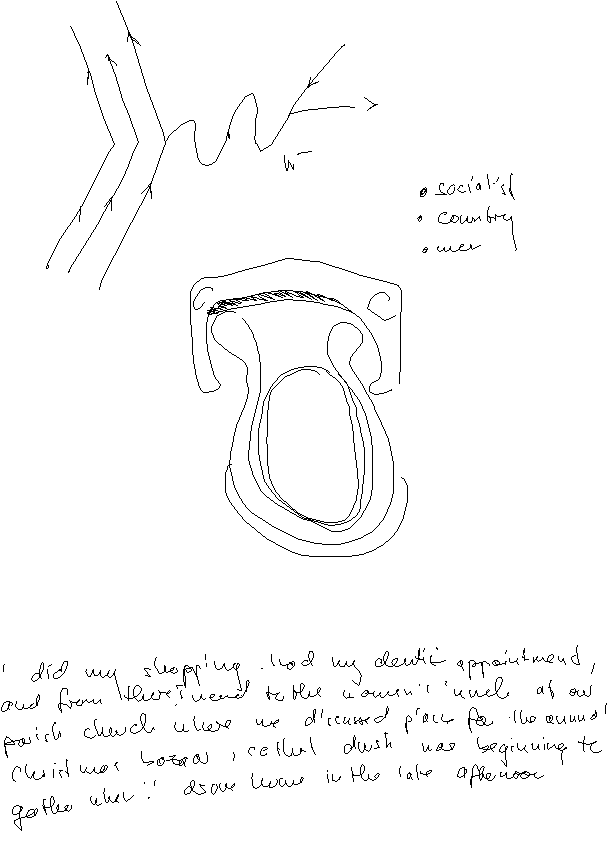 W⁻
• socialist
• country
• men
I did my shopping, had my dentist appointment,
and from there I went to the women's lunch at our
parish church where we discussed plans for the annual
Christmas bazaar, so that dusk was beginning to
gather when I drove home in the late afternoon